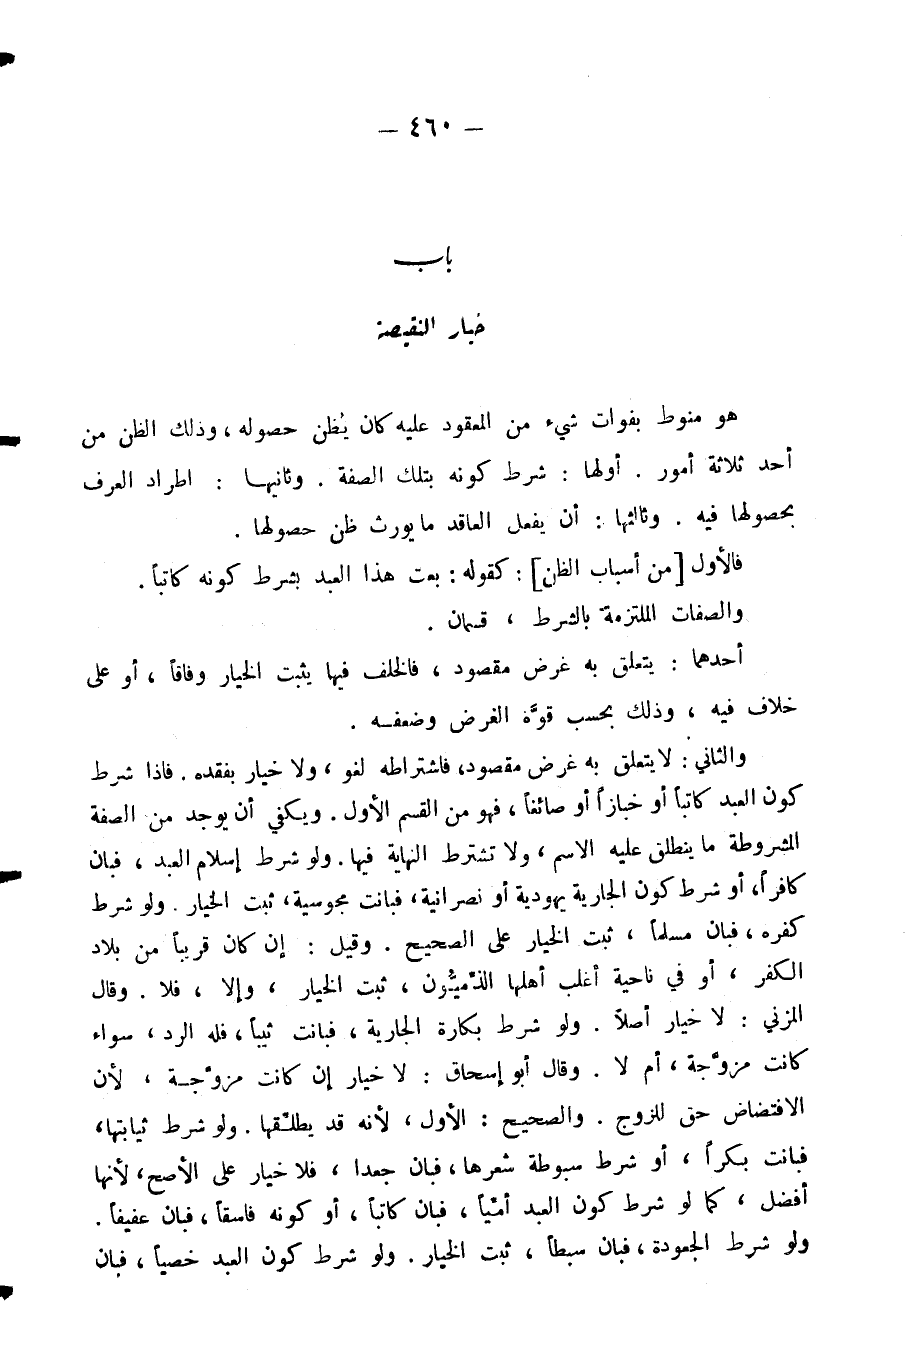 — ٤٦٠ —
باب
خيار النقيصة
هو منوط بفوات شيء من المعقود عليه كان يُظن حصوله ، وذلك الظن من
أحد ثلاثة أمور . أولها : شرط كونه بتلك الصفة . وثانيها : اطراد العرف
بحصولها فيه . وثالثها : أن يفعل العاقد ما يورث ظن حصولها .
فالأول [من أسباب الظن] : كقوله : بعت هذا العبد بشرط كونه كاتباً .
والصفات الملتزمة بالشرط ، قسمان .
أحدهما : يتعلق به غرض مقصود ، فالخلف فيها يثبت الخيار وفاقاً ، أو على
خلاف فيه ، وذلك بحسب قوَّة الغرض وضعفه .
والثاني : لا يتعلق به غرض مقصود، فاشتراطه لغو ، ولا خيار بفقده . فاذا شرط
كون العبد كاتباً أو خبازاً أو صائغاً ، فهو من القسم الأول . ويكفي أن يوجد من الصفة
المشروطة ما ينطلق عليه الاسم ، ولا تشترط النهاية فيها . ولو شرط إسلام العبد ، فبان
كافراً، أو شرط كون الجارية يهودية أو نصرانية، فبانت مجوسية، ثبت الخيار . ولو شرط
كفره ، فبان مسلماً ، ثبت الخيار على الصحيح . وقيل : إن كان قريباً من بلاد
الكفر ، أو في ناحية أغلب أهلها الذِّميُّون ، ثبت الخيار ، وإلا ، فلا . وقال
المزني : لا خيار أصلاً . ولو شرط بكارة الجارية ، فبانت ثيباً ، فله الرد ، سواء
كانت مزوَّجة ، أم لا . وقال أبو إسحاق : لا خيار إن كانت مزوَّجة ، لأن
الافتضاض حق للزوج . والصحيح : الأول ، لأنه قد يطلّقها . ولو شرط ثيابتها،
فبانت بكراً ، أو شرط سبوطة شعرها ، فبان جعدا ، فلا خيار على الأصح ، لأنها
أفضل ، كما لو شرط كون العبد أمّياً ، فبان كاتباً ، أو كونه فاسقاً ، فبان عفيفاً .
ولو شرط الجعودة ، فبان سبطاً ، ثبت الخيار . ولو شرط كون العبد خصياً ، فبان